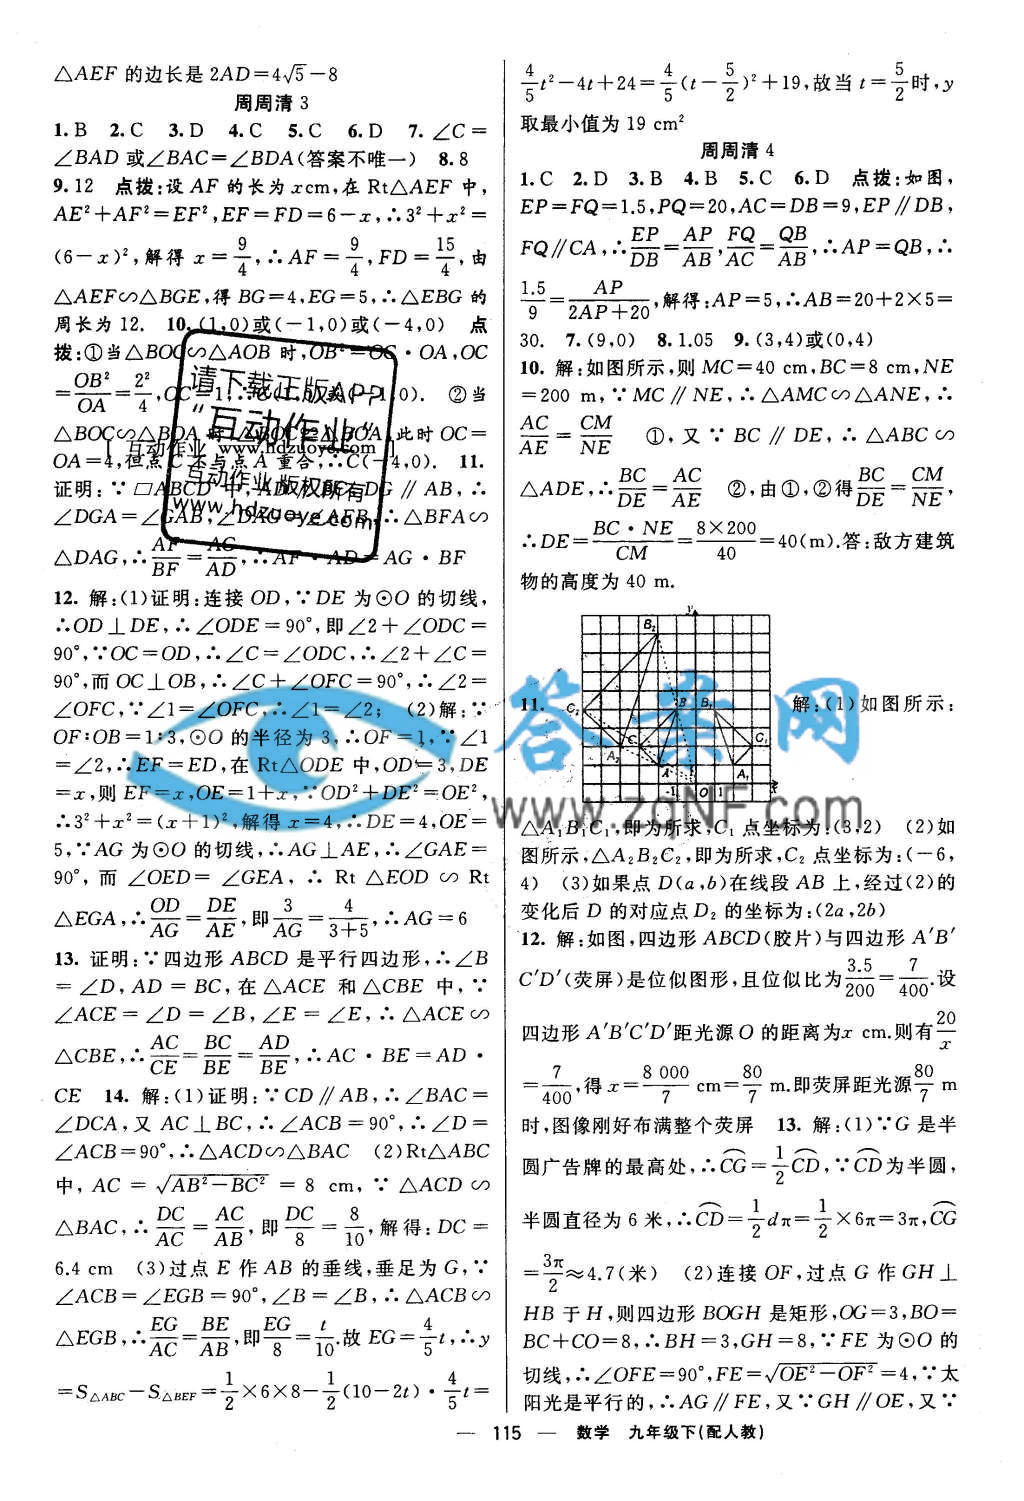 △AEF 的边长是 2AD=4√5-8
周周清 3
1.B 2.C 3.D 4.C 5.C 6.D 7.∠C=
∠BAD 或∠BAC=∠BDA(答案不唯一) 8.8
9.12 点拨:设 AF 的长为 xcm,在 Rt△AEF 中,
AE²+AF²=EF²,EF=FD=6-x,∴3²+x²=
(6-x)²,解得 x=9/4,∴AF=9/4,FD=15/4,由
△AEF∽△BGE,得 BG=4,EG=5,∴△EBG 的
周长为 12. 10.(1,0)或(-1,0)或(-4,0) 点
拨:①当△BOC∽△AOB 时,OB²=OC·OA,OC
=OB²/OA=2²/4,OC=1,∴C(1,0)或(-1,0). ②当
△BOC∽△BOA 时,△BOC≌△BOA,此时 OC=
OA=4,但点 C 不与点 A 重合,∴C(-4,0). 11.
证明:∵□ABCD 中,AD∥BC,DG∥AB,∴
∠DGA=∠GAB,∠DAG=∠AFB,∴△BFA∽
△DAG,∴AF/BF=AG/AD,∴AF·AD=AG·BF
12. 解:(1)证明:连接 OD,∵DE 为⊙O 的切线,
∴OD⊥DE,∴∠ODE=90°,即∠2+∠ODC=
90°,∵OC=OD,∴∠C=∠ODC,∴∠2+∠C=
90°,而 OC⊥OB,∴∠C+∠OFC=90°,∴∠2=
∠OFC,∵∠1=∠OFC,∴∠1=∠2; (2)解:∵
OF:OB=1:3,⊙O 的半径为 3,∴OF=1,∵∠1
=∠2,∴EF=ED,在 Rt△ODE 中,OD=3,DE
=x,则 EF=x,OE=1+x,∵OD²+DE²=OE²,
∴3²+x²=(x+1)²,解得 x=4,∴DE=4,OE=
5,∵AG 为⊙O 的切线,∴AG⊥AE,∴∠GAE=
90°,而∠OED=∠GEA,∴ Rt △EOD ∽ Rt
△EGA,∴OD/AG=DE/AE,即3/AG=4/(3+5),∴AG=6
13. 证明:∵四边形 ABCD 是平行四边形,∴∠B
=∠D,AD=BC,在△ACE 和△CBE 中,∵
∠ACE=∠D=∠B,∠E=∠E,∴△ACE∽
△CBE,∴AC/CE=BC/BE=AD/BE,∴AC·BE=AD·
CE 14. 解:(1)证明:∵CD∥AB,∴∠BAC=
∠DCA,又 AC⊥BC,∴∠ACB=90°,∴∠D=
∠ACB=90°,∴△ACD∽△BAC (2)Rt△ABC
中,AC=√(AB²-BC²)=8 cm,∵△ACD∽
△BAC,∴DC/AC=AC/AB,即DC/8=8/10,解得:DC=
6.4 cm (3)过点 E 作 AB 的垂线,垂足为 G,∵
∠ACB=∠EGB=90°,∠B=∠B,∴△ACB∽
△EGB,∴EG/AC=BE/AB,即EG/8=t/10.故 EG=4/5t,∴y
=S△ABC-S△BEF=1/2×6×8-1/2(10-2t)·4/5t=
4/5t²-4t+24=4/5(t-5/2)²+19,故当 t=5/2时,y
取最小值为 19 cm²
周周清 4
1.C 2.D 3.B 4.B 5.C 6.D 点拨:如图,
EP=FQ=1.5,PQ=20,AC=DB=9,EP∥DB,
FQ∥CA,∴EP/DB=AP/AB,FQ/AC=QB/AB,∴AP=QB,∴
1.5/9=AP/(2AP+20),解得:AP=5,∴AB=20+2×5=
30. 7.(9,0) 8.1.05 9.(3,4)或(0,4)
10. 解:如图所示,则 MC=40 cm,BC=8 cm,NE
=200 m,∵MC∥NE,∴△AMC∽△ANE,∴
AC/AE=CM/NE ①,又∵BC∥DE,∴△ABC∽
△ADE,∴BC/DE=AC/AE ②,由①,②得BC/DE=CM/NE,
∴DE=BC·NE/CM=8×200/40=40(m).答:敌方建筑
物的高度为 40 m.
11. 解:(1)如图所示:
△A₁B₁C₁,即为所求,C₁ 点坐标为:(3,2) (2)如
图所示,△A₂B₂C₂,即为所求,C₂ 点坐标为:(-6,
4) (3)如果点 D(a,b)在线段 AB 上,经过(2)的
变化后 D 的对应点 D₂ 的坐标为:(2a,2b)
12. 解:如图,四边形 ABCD(胶片)与四边形 A′B′
C′D′(荧屏)是位似图形,且位似比为3.5/200=7/400.设
四边形 A′B′C′D′距光源 O 的距离为x cm.则有20/x
=7/400,得 x=8 000/7 cm=80/7 m.即荧屏距光源80/7 m
时,图像刚好布满整个荧屏 13. 解:(1)∵G 是半
圆广告牌的最高处,∴CG=1/2CD,∵CD为半圆,
半圆直径为 6 米,∴CD=1/2dπ=1/2×6π=3π,CG
=3π/2≈4.7(米) (2)连接 OF,过点 G 作 GH⊥
HB 于 H,则四边形 BOGH 是矩形,OG=3,BO=
BC+CO=8,∴BH=3,GH=8,∵FE 为⊙O 的
切线,∴∠OFE=90°,FE=√(OE²-OF²)=4,∵太
阳光是平行的,∴AG∥FE,又∵GH∥OE,又∵
— 115 — 数学 九年级下(配人教)
请下载正版APP
“互动作业”
[ 互动作业 www.hdzuoye.com ]
互动作业版权所有
www.hdzuoye.com
答案网
www.zqNF.com